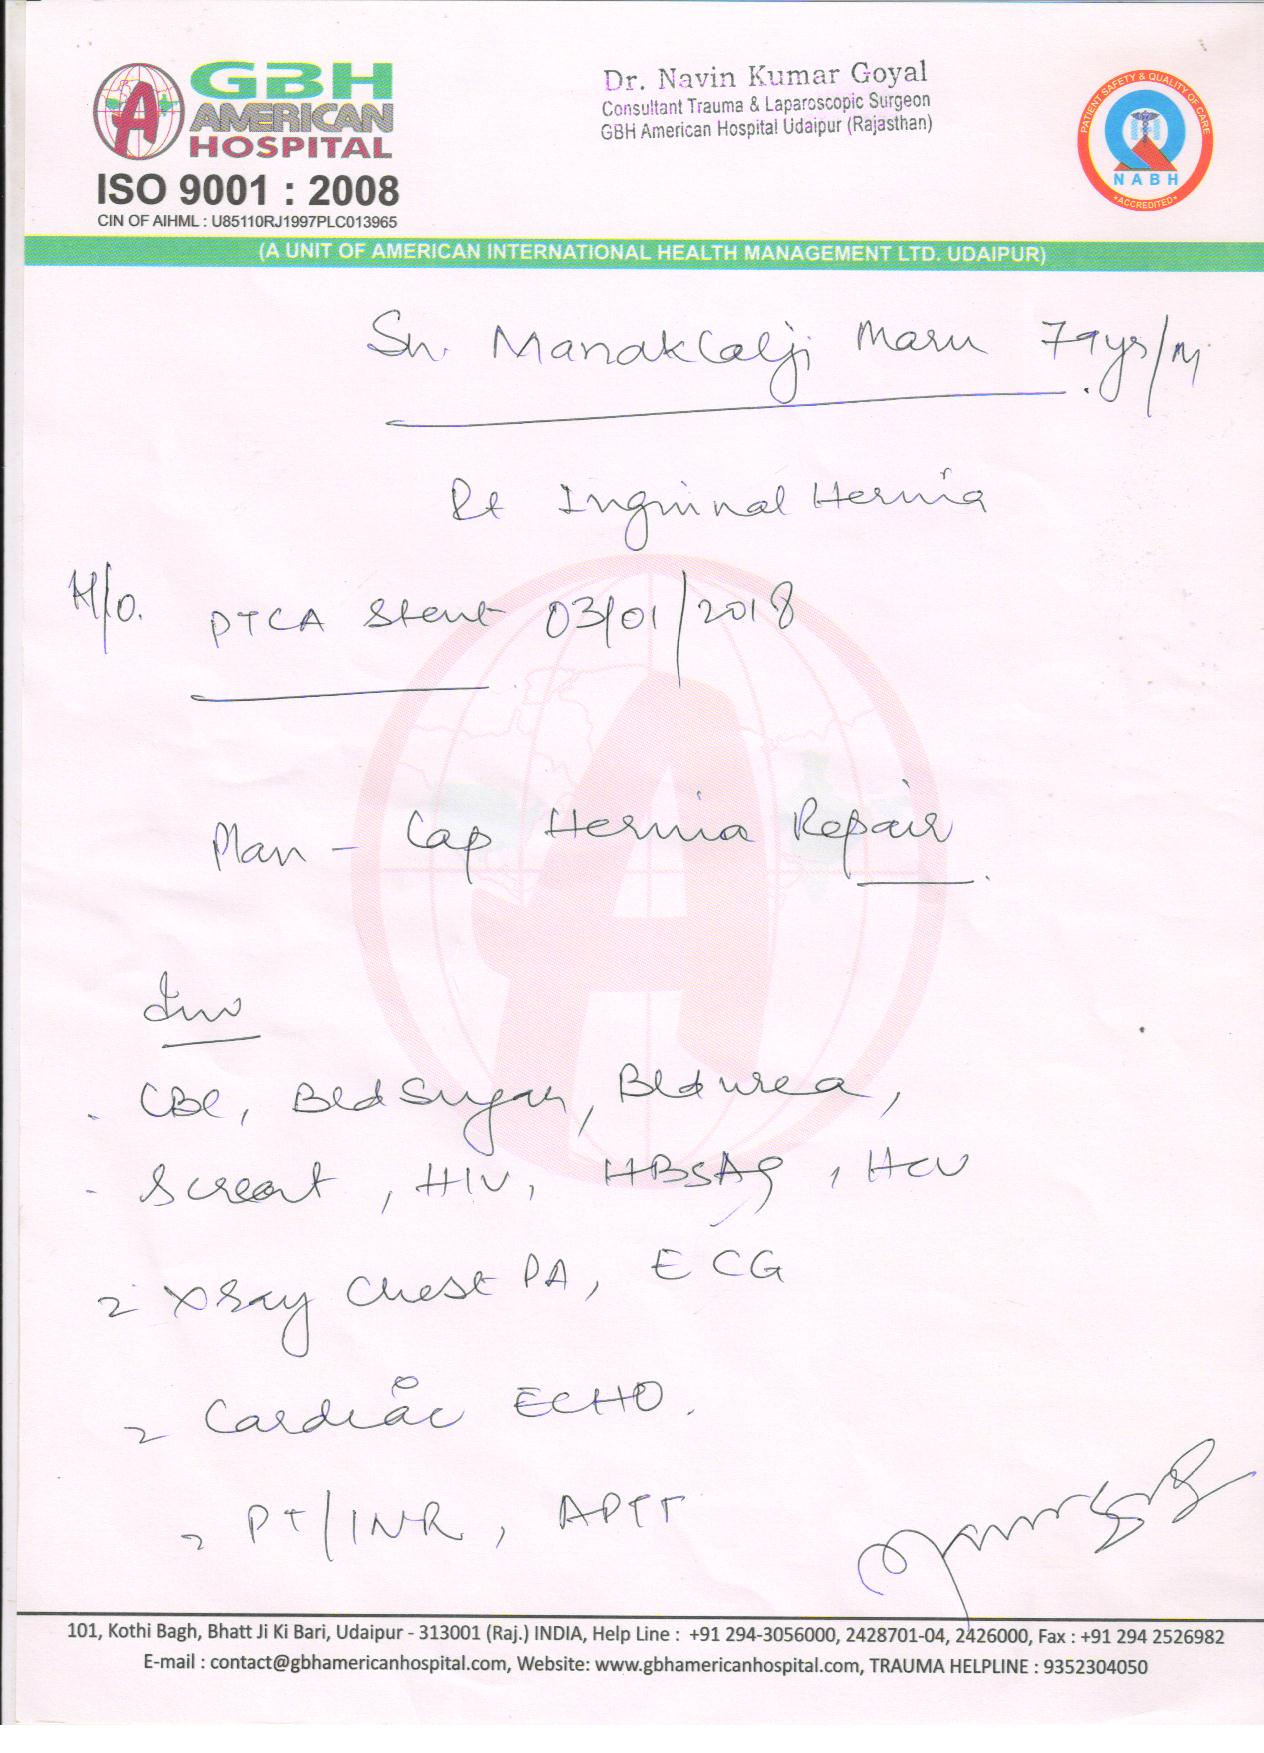 GBH
AMERICAN
HOSPITAL
ISO 9001 : 2008
CIN OF AIHML : U85110RJ1997PLC013965
Dr. Navin Kumar Goyal
Consultant Trauma & Laparoscopic Surgeon
GBH American Hospital Udaipur (Rajasthan)
PATIENT SAFETY & QUALITY OF CARE
NABH
ACCREDITED
(A UNIT OF AMERICAN INTERNATIONAL HEALTH MANAGEMENT LTD. UDAIPUR)
Sh. Manaklalji Maru 79ys/M
Rt Inguinal Hernia
H/O. PTCA Stent 03/01/2018
Plan - Lap Hernia Repair
Inv
- CBC, Bld Sugar, Bld urea,
- S creat, HIV, HBsAg, HCV
- X Ray Chest PA, ECG
- Cardiac ECHO.
- PT/INR, APTT
101, Kothi Bagh, Bhatt Ji Ki Bari, Udaipur - 313001 (Raj.) INDIA, Help Line : +91 294-3056000, 2428701-04, 2426000, Fax : +91 294 2526982
E-mail : contact@gbhamericanhospital.com, Website: www.gbhamericanhospital.com, TRAUMA HELPLINE : 9352304050